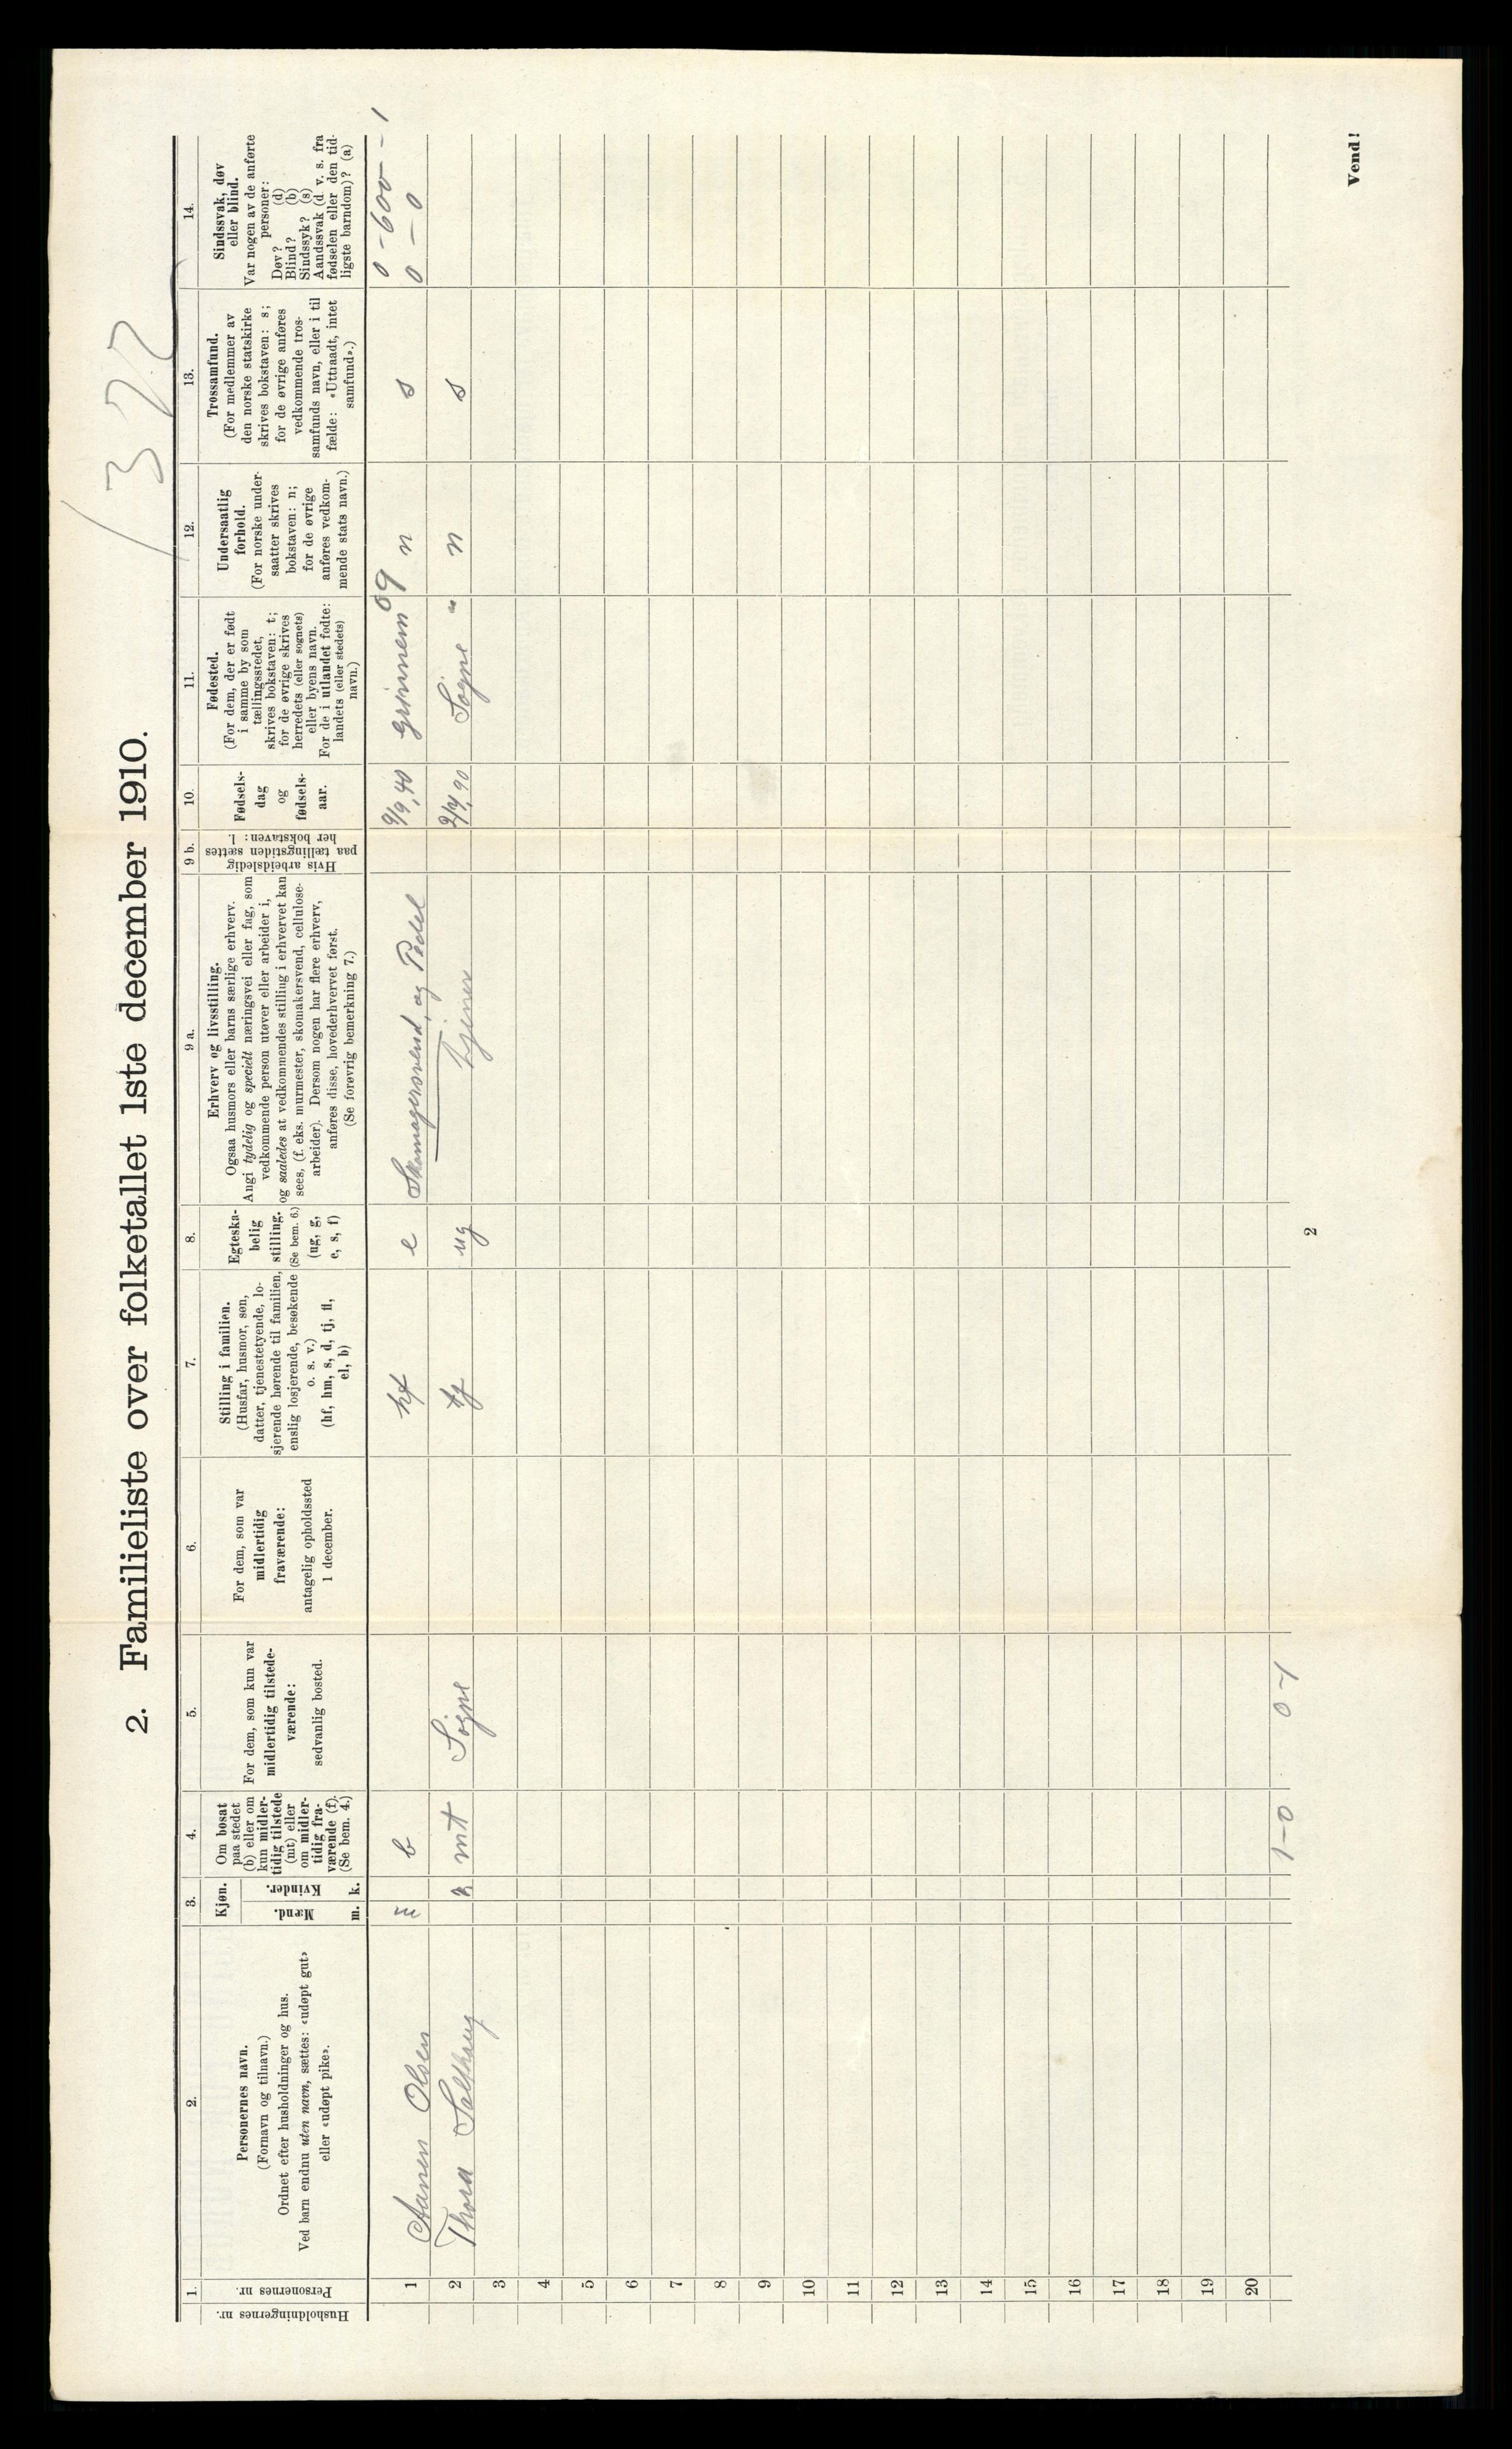 1322
2. Familieliste over folketallet 1ste december 1910.
1.
Husholdningernes nr.
Personernes nr.
2.
Personernes navn.
(Fornavn og tilnavn.)
Ordnet efter husholdninger og hus.
Ved barn endnu uten navn, sættes: «udøpt gut»
eller «udøpt pike».
3.
Kjøn.
Mænd.
Kvinder.
m. k.
4.
Om bosat
paa stedet
(b) eller om
kun midler-
tidig tilstede
(mt) eller
om midler-
tidig fra-
værende (f).
(Se bem. 4.)
5.
For dem, som kun var
midlertidig tilstede-
værende:
sedvanlig bosted.
6.
For dem, som var
midlertidig
fraværende:
antagelig opholdssted
1 december.
7.
Stilling i familien.
(Husfar, husmor, søn,
datter, tjenestetyende, lo-
sjerende hørende til familien,
enslig losjerende, besøkende
o. s. v.)
(hf, hm, s, d, tj, fl,
el, b)
8.
Egteska-
belig
stilling.
(Se bem. 6.)
(ug, g,
e, s, f)
9 a.
Erhverv og livsstilling.
Ogsaa husmors eller barns særlige erhverv.
Angi tydelig og specielt næringsvei eller fag, som
vedkommende person utøver eller arbeider i,
og saaledes at vedkommendes stilling i erhvervet kan
sees, (f. eks. murmester, skomakersvend, cellulose-
arbeider). Dersom nogen har flere erhverv,
anføres disse, hovederhvervet først.
(Se forøvrig bemerkning 7.)
9 b.
Hvis arbeidsledig
paa tællingstiden sættes
her bokstaven: l.
10.
Fødsels-
dag
og
fødsels-
aar.
11.
Fødested.
(For dem, der er født
i samme by som
tællingsstedet,
skrives bokstaven: t;
for de øvrige skrives
herredets (eller sognets)
eller byens navn.
For de i utlandet fødte:
landets (eller stedets)
navn.)
12.
Undersaatlig
forhold.
(For norske under-
saatter skrives
bokstaven: n;
for de øvrige
anføres vedkom-
mende stats navn.)
13.
Trossamfund.
(For medlemmer av
den norske statskirke
skrives bokstaven: s;
for de øvrige anføres
vedkommende tros-
samfunds navn, eller i til
fælde: «Uttraadt, intet
samfund».)
14.
Sindssvak, døv
eller blind.
Var nogen av de anførte
personer:
Døv? (d)
Blind? (b)
Sindssyk? (s)
Aandssvak (d. v. s. fra
fødselen eller den tid-
ligste barndom)? (a)
0 - 600 - 1
0 - 0
1 Aanen Olsen m b hf e Skomagersvend, og Pedel 9/9,40 grimnem 09 n s
2 Thora Salthaug k mt Sogne tj ug tjener 2/4,90 Sogne " n s
3
4
5
6
7
8
9
10
11
12
13
14
15
16
17
18
19
20
1-0 0-1
2
Vend!